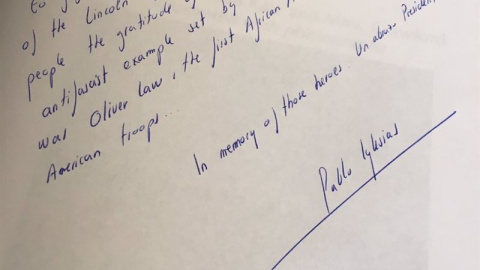 to
of the Lincoln
people the gratitude
antifascist example set by
was Oliver Law, the first African
American troops...
In memory of those heroes. Un abrazo President
Pablo Iglesias